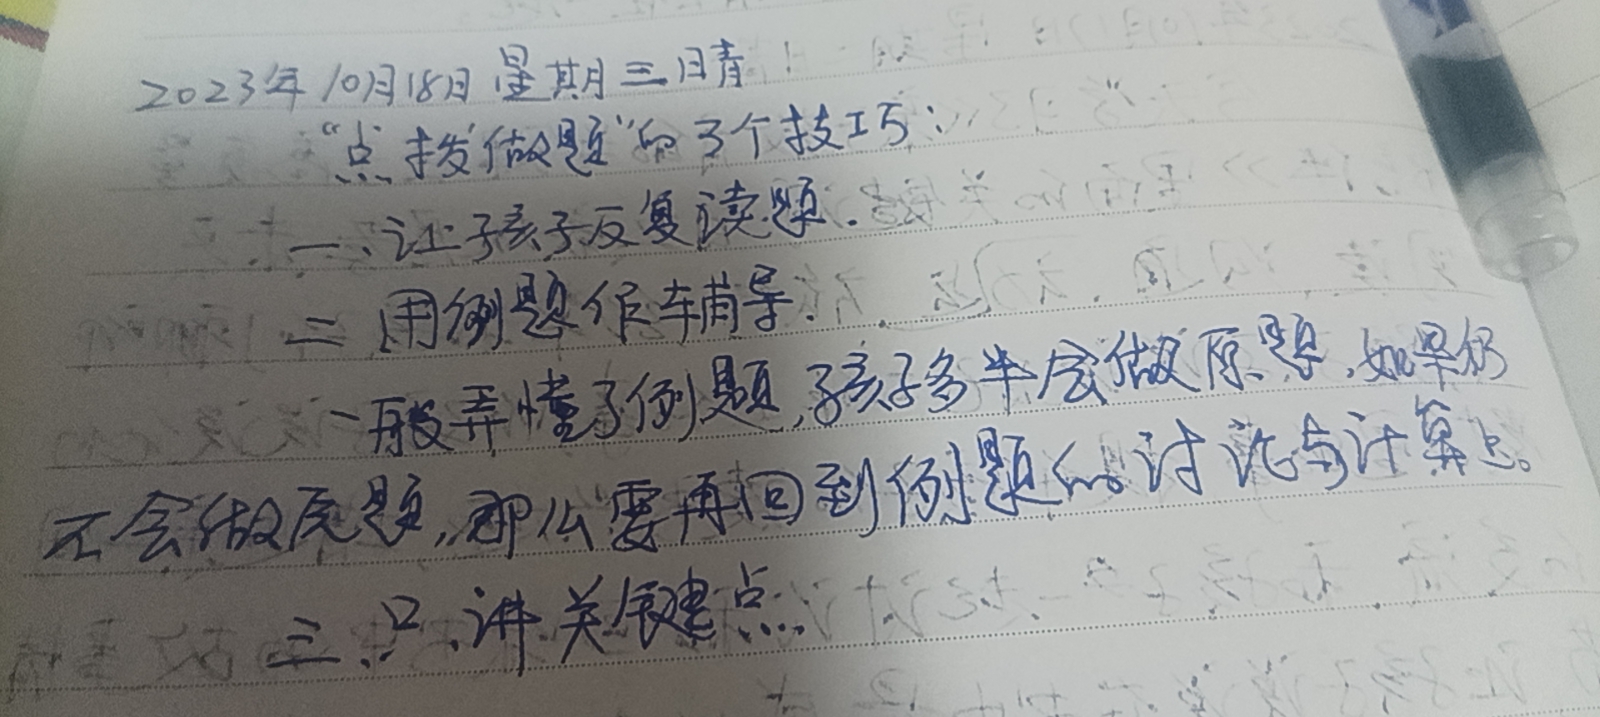 2023年10月18日 星期三 日青
“点拨做题”的3个技巧:
一、让孩子反复读题.
二 用例题作辅导.
一般弄懂了例题,孩子多半会做原题.如果仍
不会做原题,那么要再回到例题的讨论与计算上。
三.只讲关键点